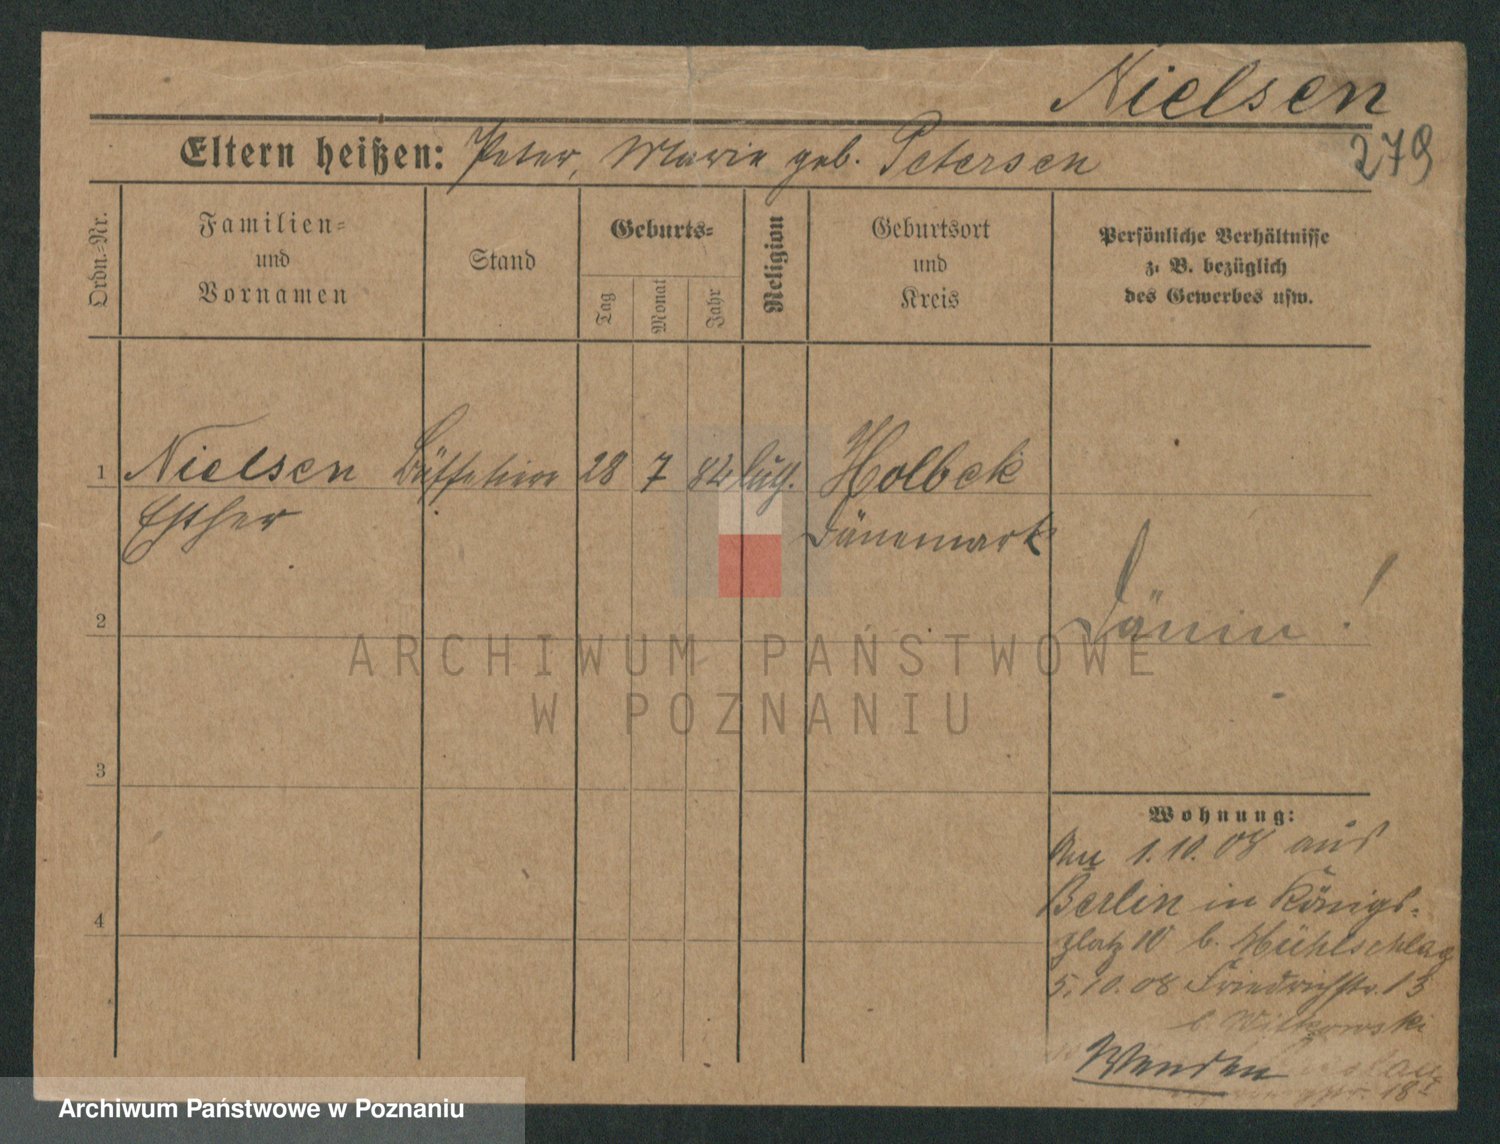 Nielsen
279
Eltern heißen: Peter, Marie geb. Petersen
Ordn.-Nr.
Familien-
und
Vornamen
Stand
Geburts-
Tag
Monat
Jahr
Religion
Geburtsort
und
Kreis
Persönliche Verhältnisse
z. B. bezüglich
des Gewerbes usw.
1 Nielsen 28 7 84 luth. Holbek
Esther Dänemark
2 Dänin!
3
4
Wohnung:
1.10.08 aus
Berlin in Königs-
platz 10 b. Mühlschlag
5.10.08 Friedrichstr. 13
b Witkowski
Wenden
ARCHIWUM PAŃSTWOWE
W POZNANIU
Archiwum Państwowe w Poznaniu